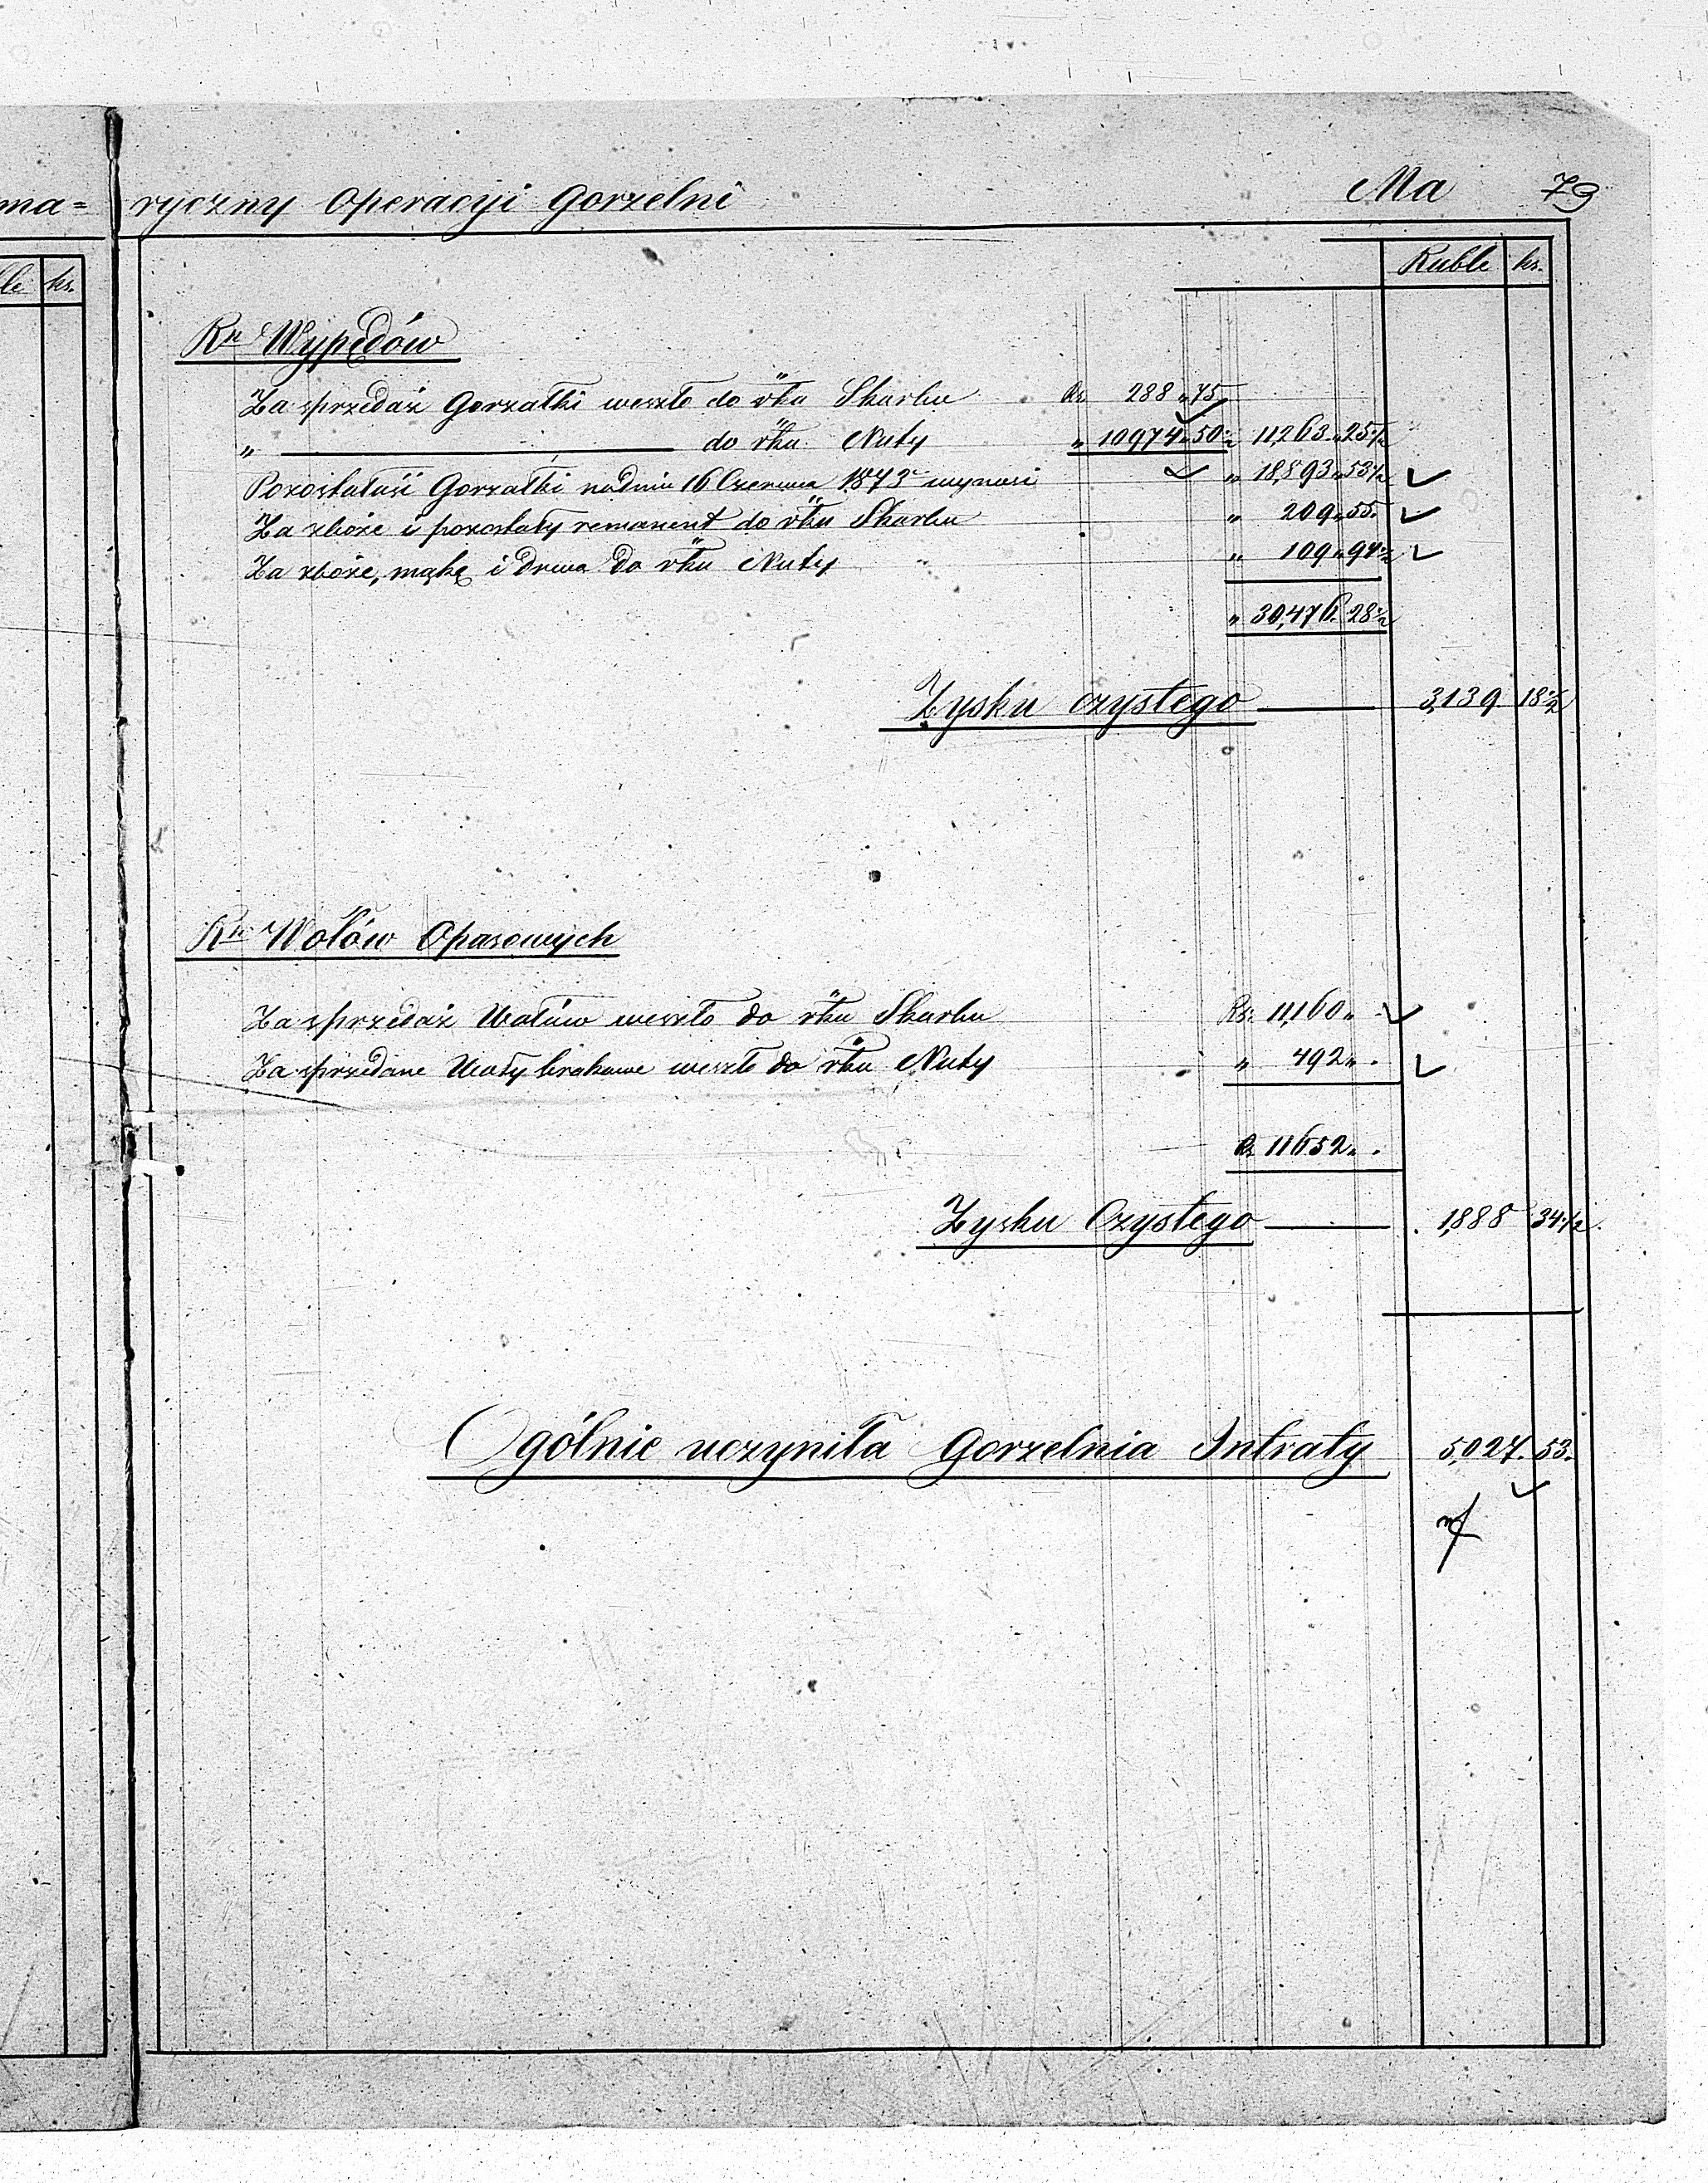 ma= ryczny Operacyi Gorzelni Ma 73
le ks. Ruble ks.
Rk Wypędów
Za sprzedaż Gorzałki weszło do rku Skarbu Rs. 288 „ 75
„ do rku Nuty „ 10974 „ 50 1/2 11,263 „ 25 1/2
Pozostałość Gorzałki na dniu 16 Czerwca 1873 r wynosi „ 18,893 „ 53 1/2
Za zboże i pozostały remanent do rku Skarbu „ 209 „ 55.
Za zboże, mąkę i drwa do rku Nuty „ 109 „ 94 1/2
„ 30,476. 28 1/2
Zysku czystego 3,139. 18 1/2
Rk Wołów Opasowych
Za sprzedaż Wołów weszło do rku Skarbu Rs. 11,160 „ .
Za sprzedane Woły brakowe weszło do rku Nuty „ 492 „ .
Rs 11652 „ .
Zysku Czystego 1,888 34 1/2
Ogólnie uczyniła Gorzelnia Intraty 5,027. 53.